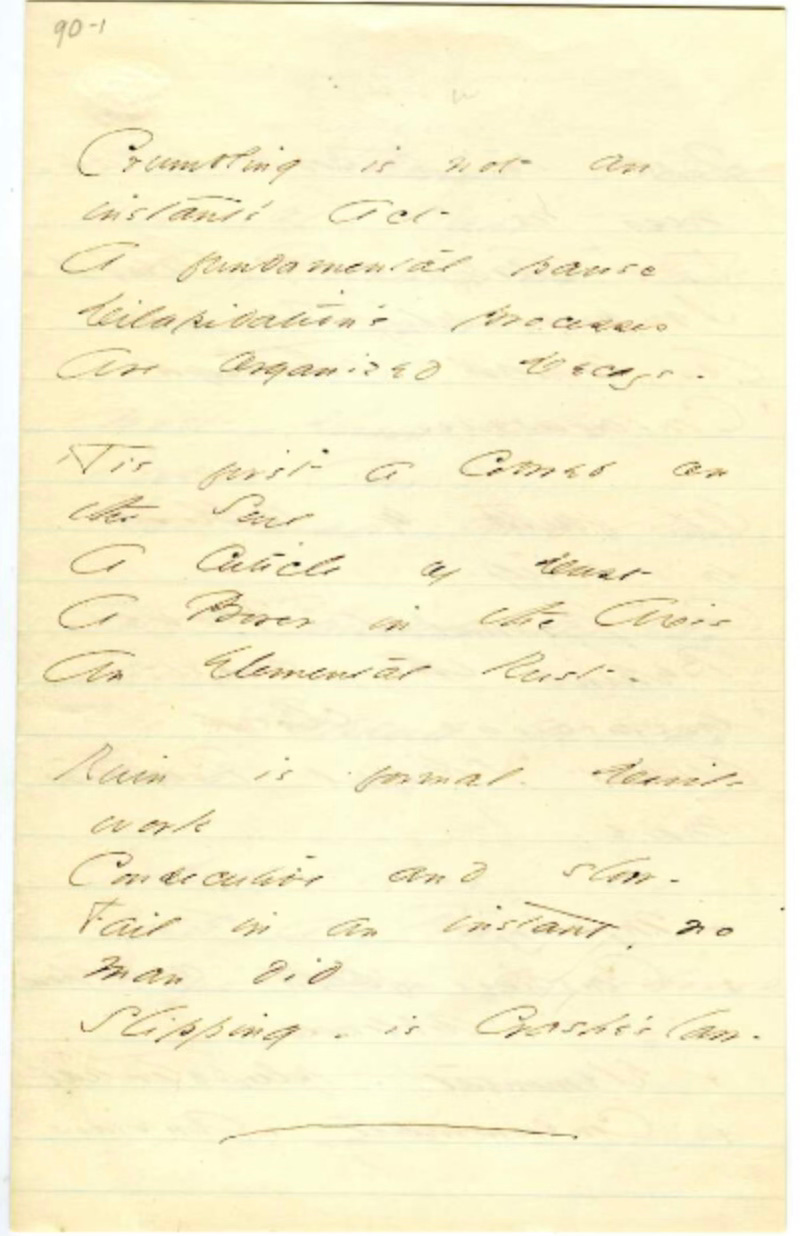 90-1
Crumbling is not an
instant's Act
A fundamental pause
Dilapidation's processes
Are organized Decays -
'Tis first a Cobweb on
the Soul
A Cuticle of Dust
A Borer in the Axis
An Elemental Rust -
Ruin is formal - Devil's
work
Consecutive and slow -
Fail in an instant, no
man did
Slipping - is Crashe's law -